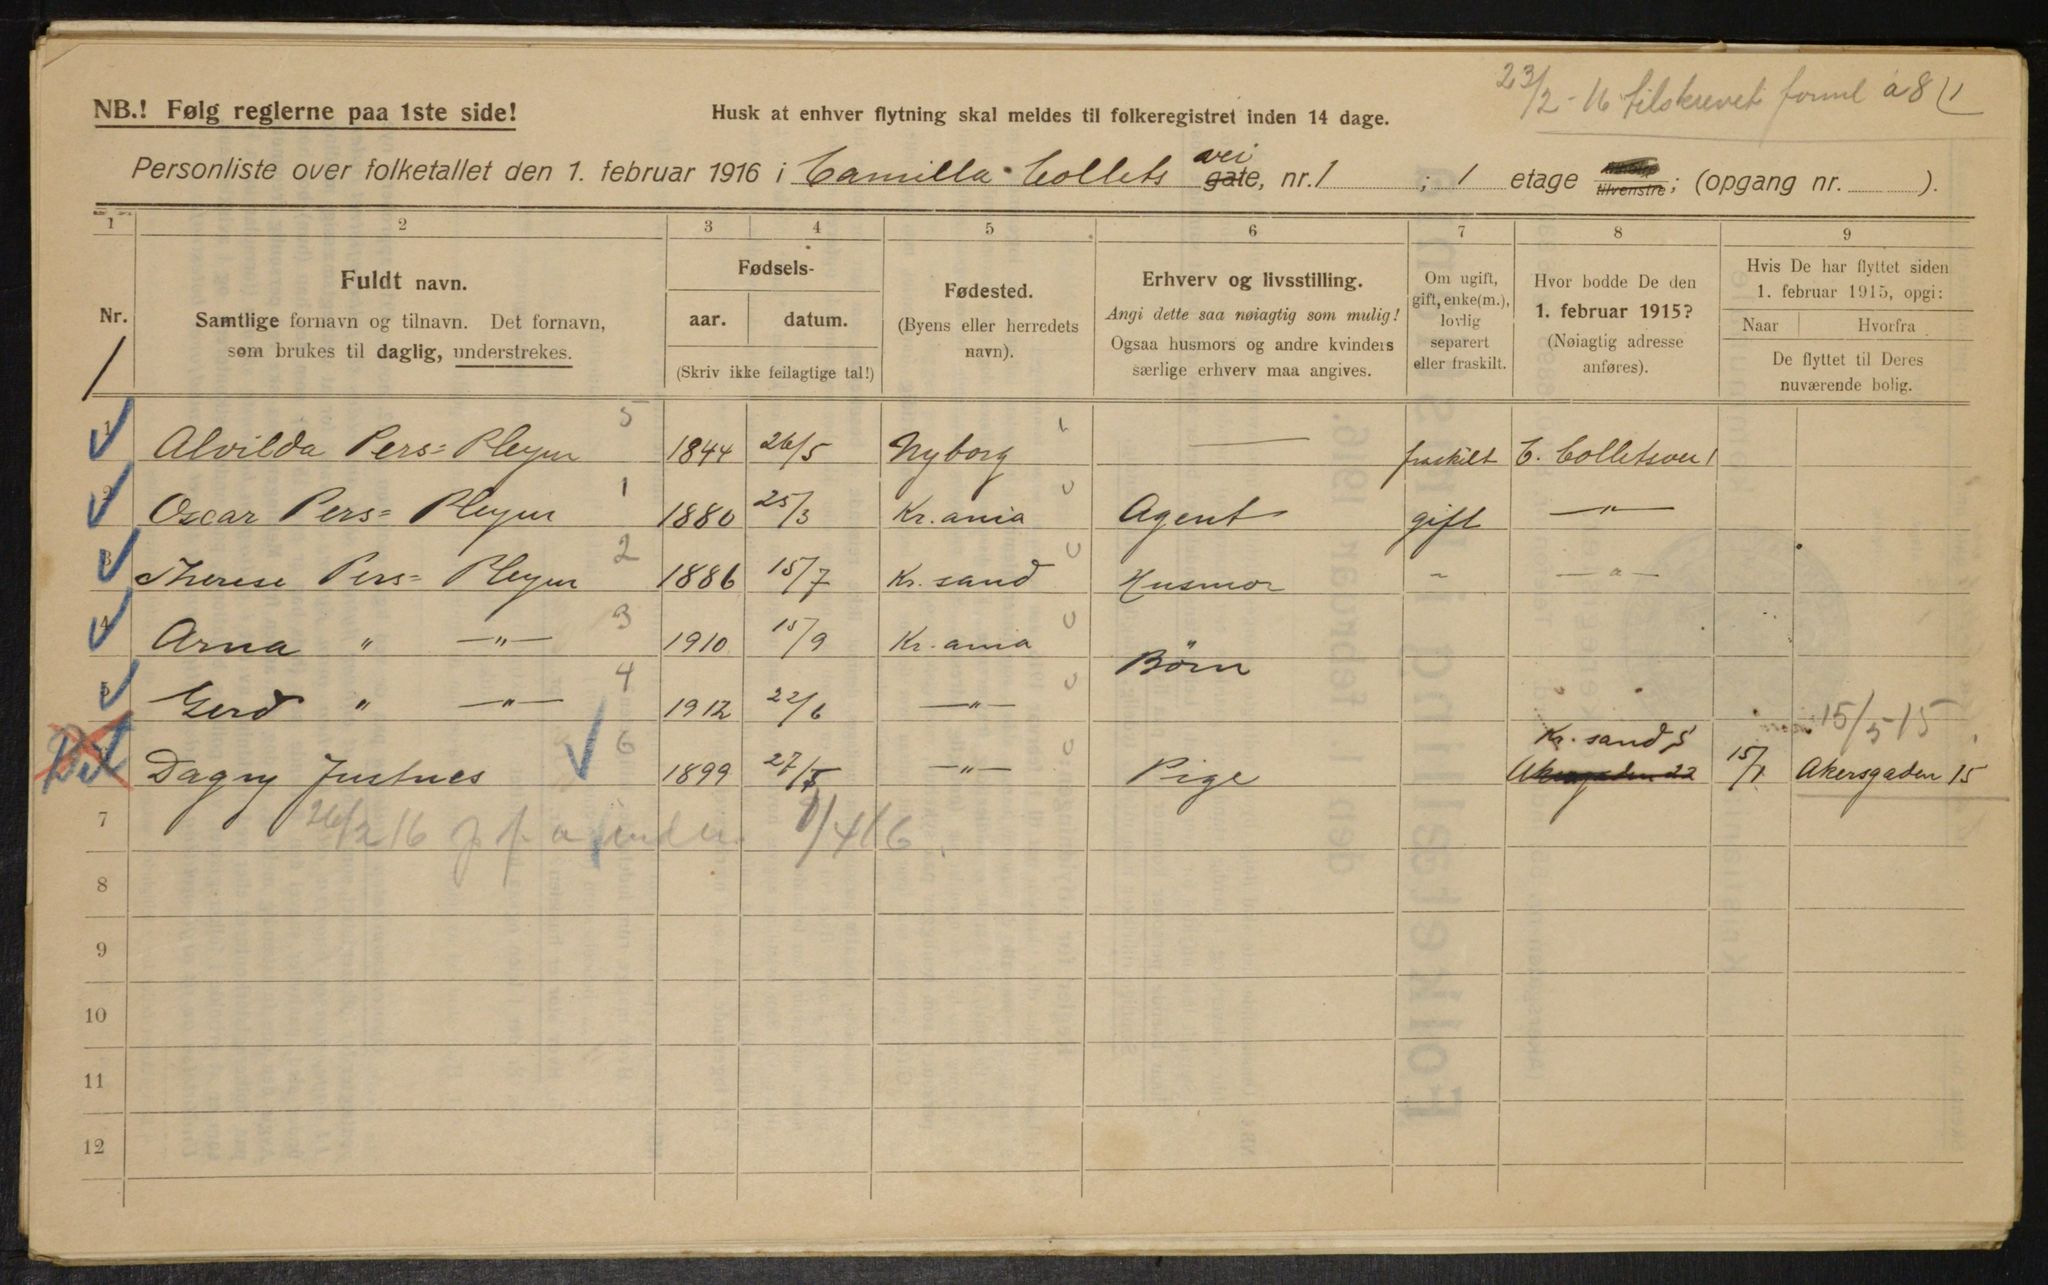 23/2-16 tilskrevet forml a 8/1
NB.! Følg reglerne paa 1ste side!
Husk at enhver flytning skal meldes til folkeregistret inden 14 dage.
Personliste over folketallet den 1. februar 1916 i Camilla Collets gate, vei nr. 1 ; 1 etage tilvenstre; (opgang nr. ).
1 2 3 4 5 6 7 8 9
Nr.
Fuldt navn.
Samtlige fornavn og tilnavn. Det fornavn,
som brukes til daglig, understrekes.
Fødsels-
aar. datum.
(Skriv ikke feilagtige tal!)
Fødested.
(Byens eller herredets
navn).
Erhverv og livsstilling.
Angi dette saa nøiagtig som mulig!
Ogsaa husmors og andre kvinders
særlige erhverv maa angives.
Om ugift,
gift, enke(m.),
lovlig
separert
eller fraskilt.
Hvor bodde De den
1. februar 1915?
(Nøiagtig adresse
anføres).
Hvis De har flyttet siden
1. februar 1915, opgi:
Naar Hvorfra
De flyttet til Deres
nuværende bolig.
1 Alvilda Pers= Pleym 5 1844 26/5 Nyborg — fraskilt C. Colletsvei 1
2 Oscar Pers= Pleym 1 1880 25/3 Kr.ania Agent gift —"—
3 Therese Pers= Pleym 2 1886 15/7 Kr.sand Husmor " —"—
4 Arna " —"— 3 1910 15/9 Kr.ania
Børn
5 Gerd " —"— 4 1912 22/6 —"—
15/5-15
Kr.sand S
Dagny Justnes 6 1899 27/5 —"— Pige Akersgaden 22 15/1 Akersgaden 15
7 26/2 16 1/4 16.
8
9
10
11
12